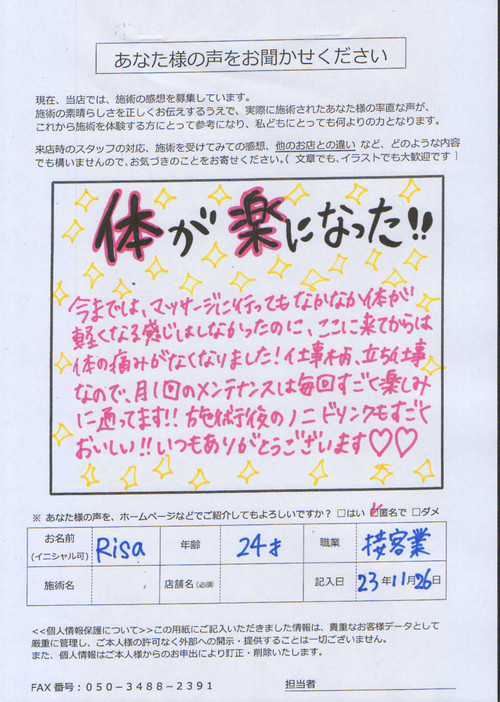 あなた様の声をお聞かせください
現在、当店では、施術の感想を募集しています。
施術の素晴らしさを正しくお伝えするうえで、実際に施術されたあなた様の率直な声が、
これから施術を体験する方にとって参考になり、私どもにとっても何よりの力となります。
来店時のスタッフの対応、施術を受けてみての感想、他のお店との違い など、どのような内容
でも構いませんので、お気づきのことをお寄せください。( 文章でも、イラストでも大歓迎です )
体が楽になった!!
今までは、マッサージに行ってもなかなか体が
軽くなる感じはしなかったのに、ここに来てからは
体の痛みがなくなりました!仕事柄、立ち仕事
なので、月1回のメンテナンスは毎回すごく楽しみ
に通ってます!!施術後のノニドリンクもすごく
おいしい!!いつもありがとうございます♡♡
※ あなた様の声を、ホームページなどでご紹介してもよろしいですか? □はい ☑匿名で □ダメ
お名前 (イニシャル可) Risa 年齢 24才 職業 接客業
施術名 店舗名(必須) 記入日 23年11月26日
<<個人情報保護について>>この用紙にご記入いただきました情報は、貴重なお客様データとして
厳重に管理し、ご本人様の許可なく外部への開示・提供することは一切ございません。
また、個人情報はご本人様からのお申出により訂正・削除いたします。
FAX 番号：050－3488－2391 担当者